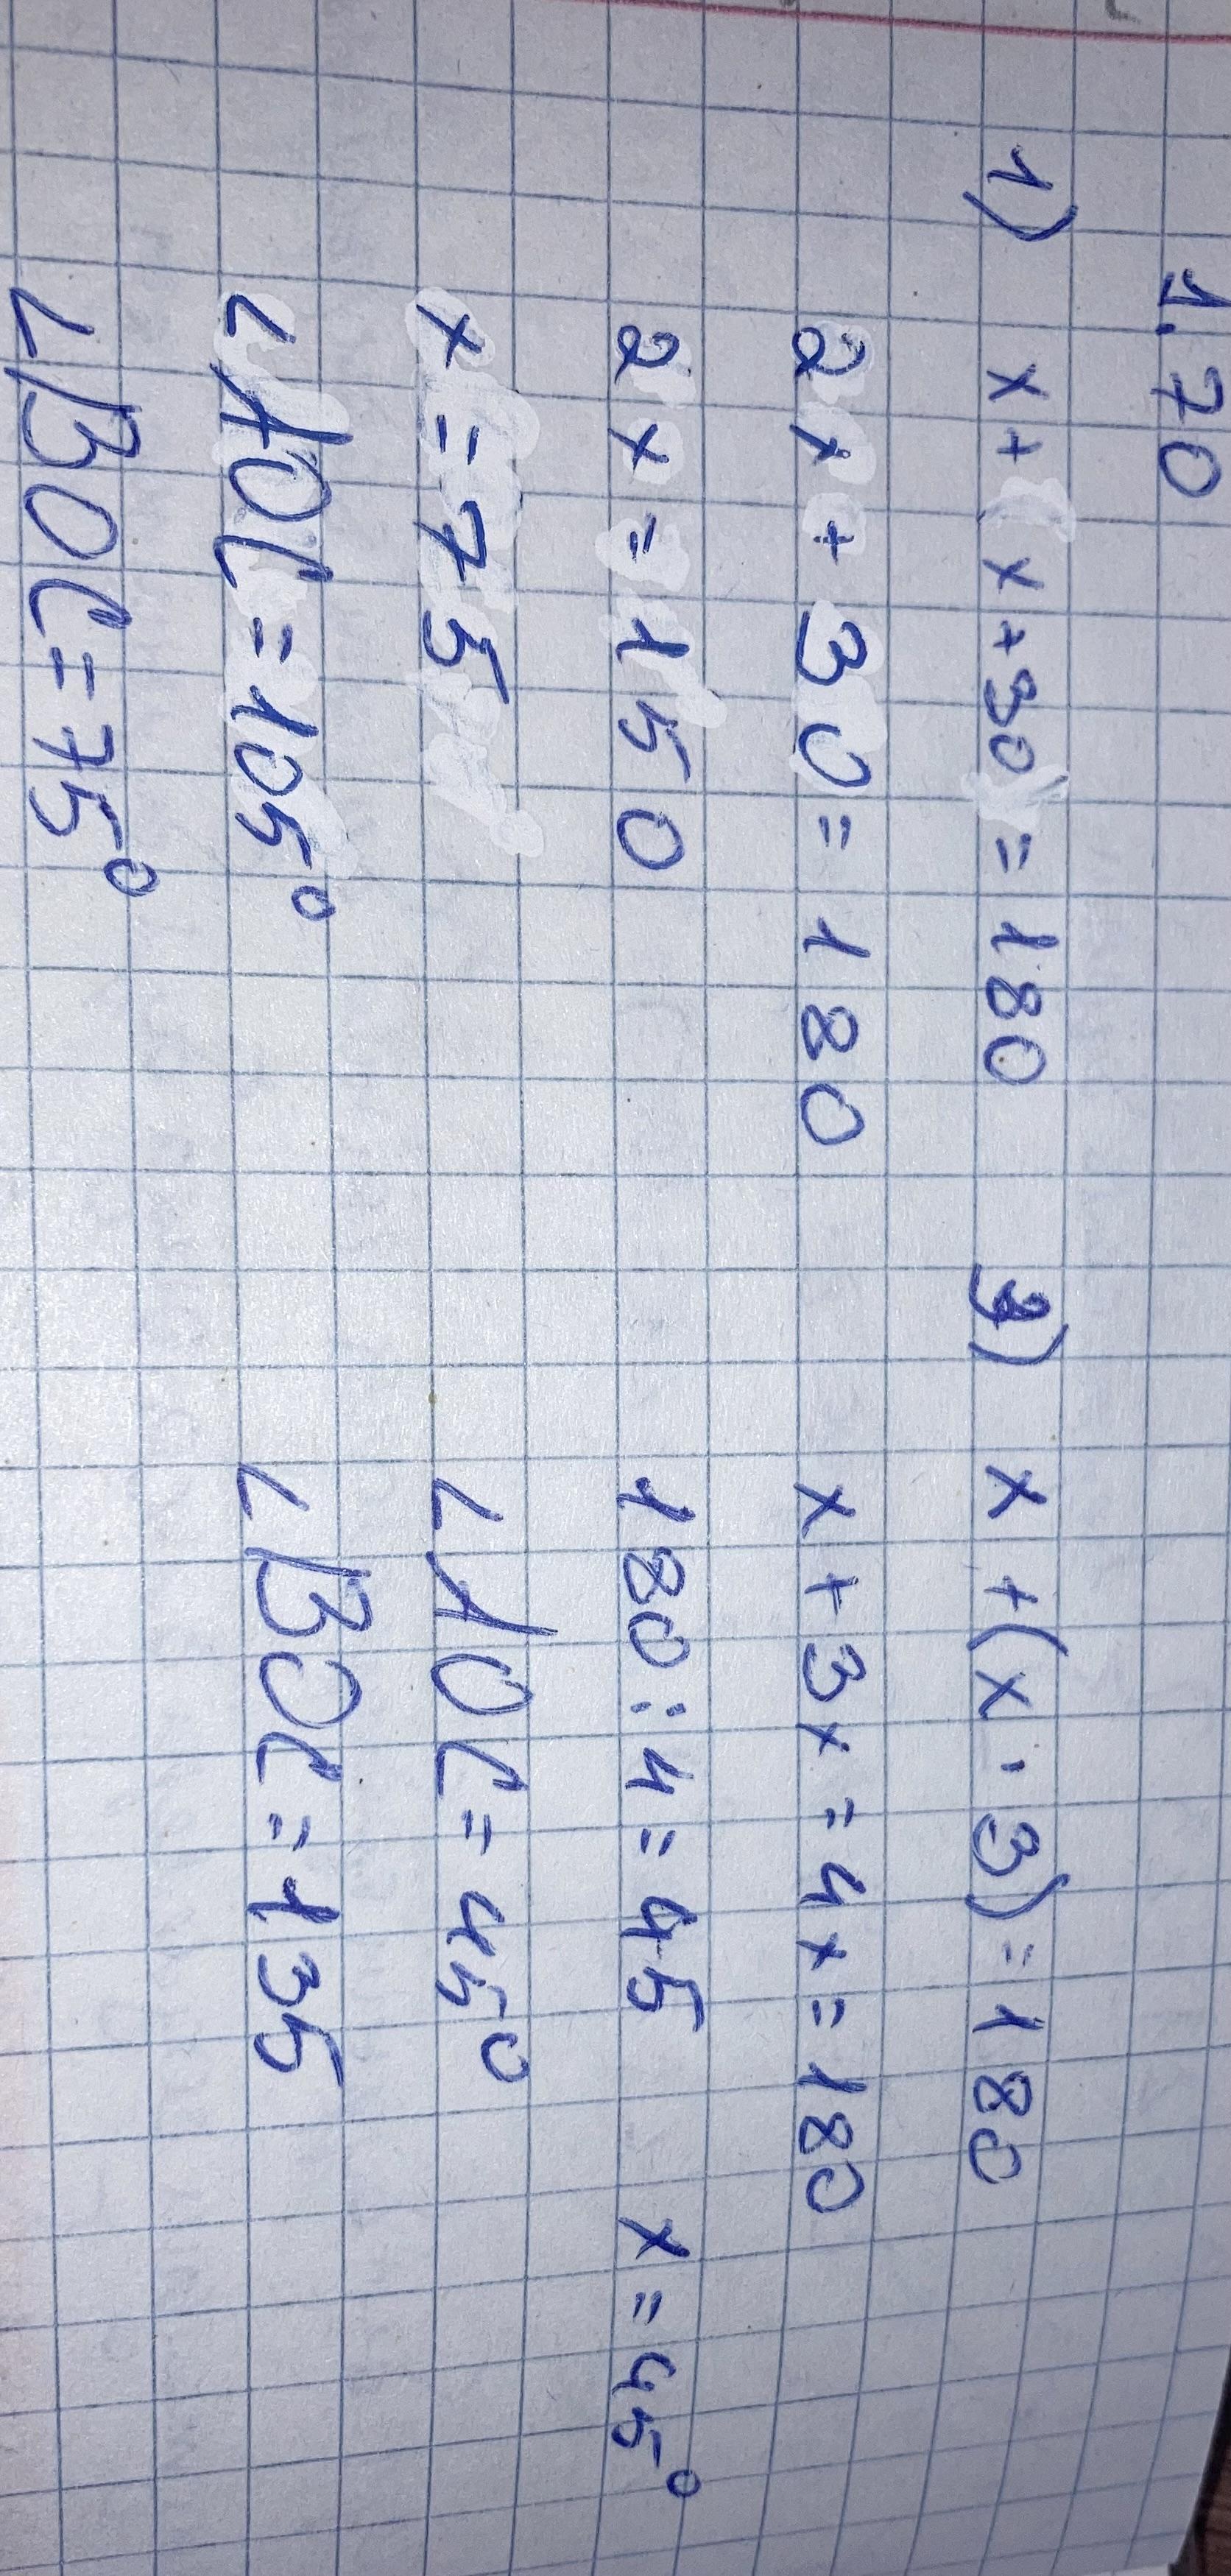 1.70
1) x + (x + 30) = 180
2x + 30 = 180
2x = 150
x = 75
∠AOC = 105°
∠BOC = 75°
x + (x · 3) = 180
x + 3x = 4x = 180
180 : 4 = 45 x = 45°
∠AOC = 45°
∠BOC = 135